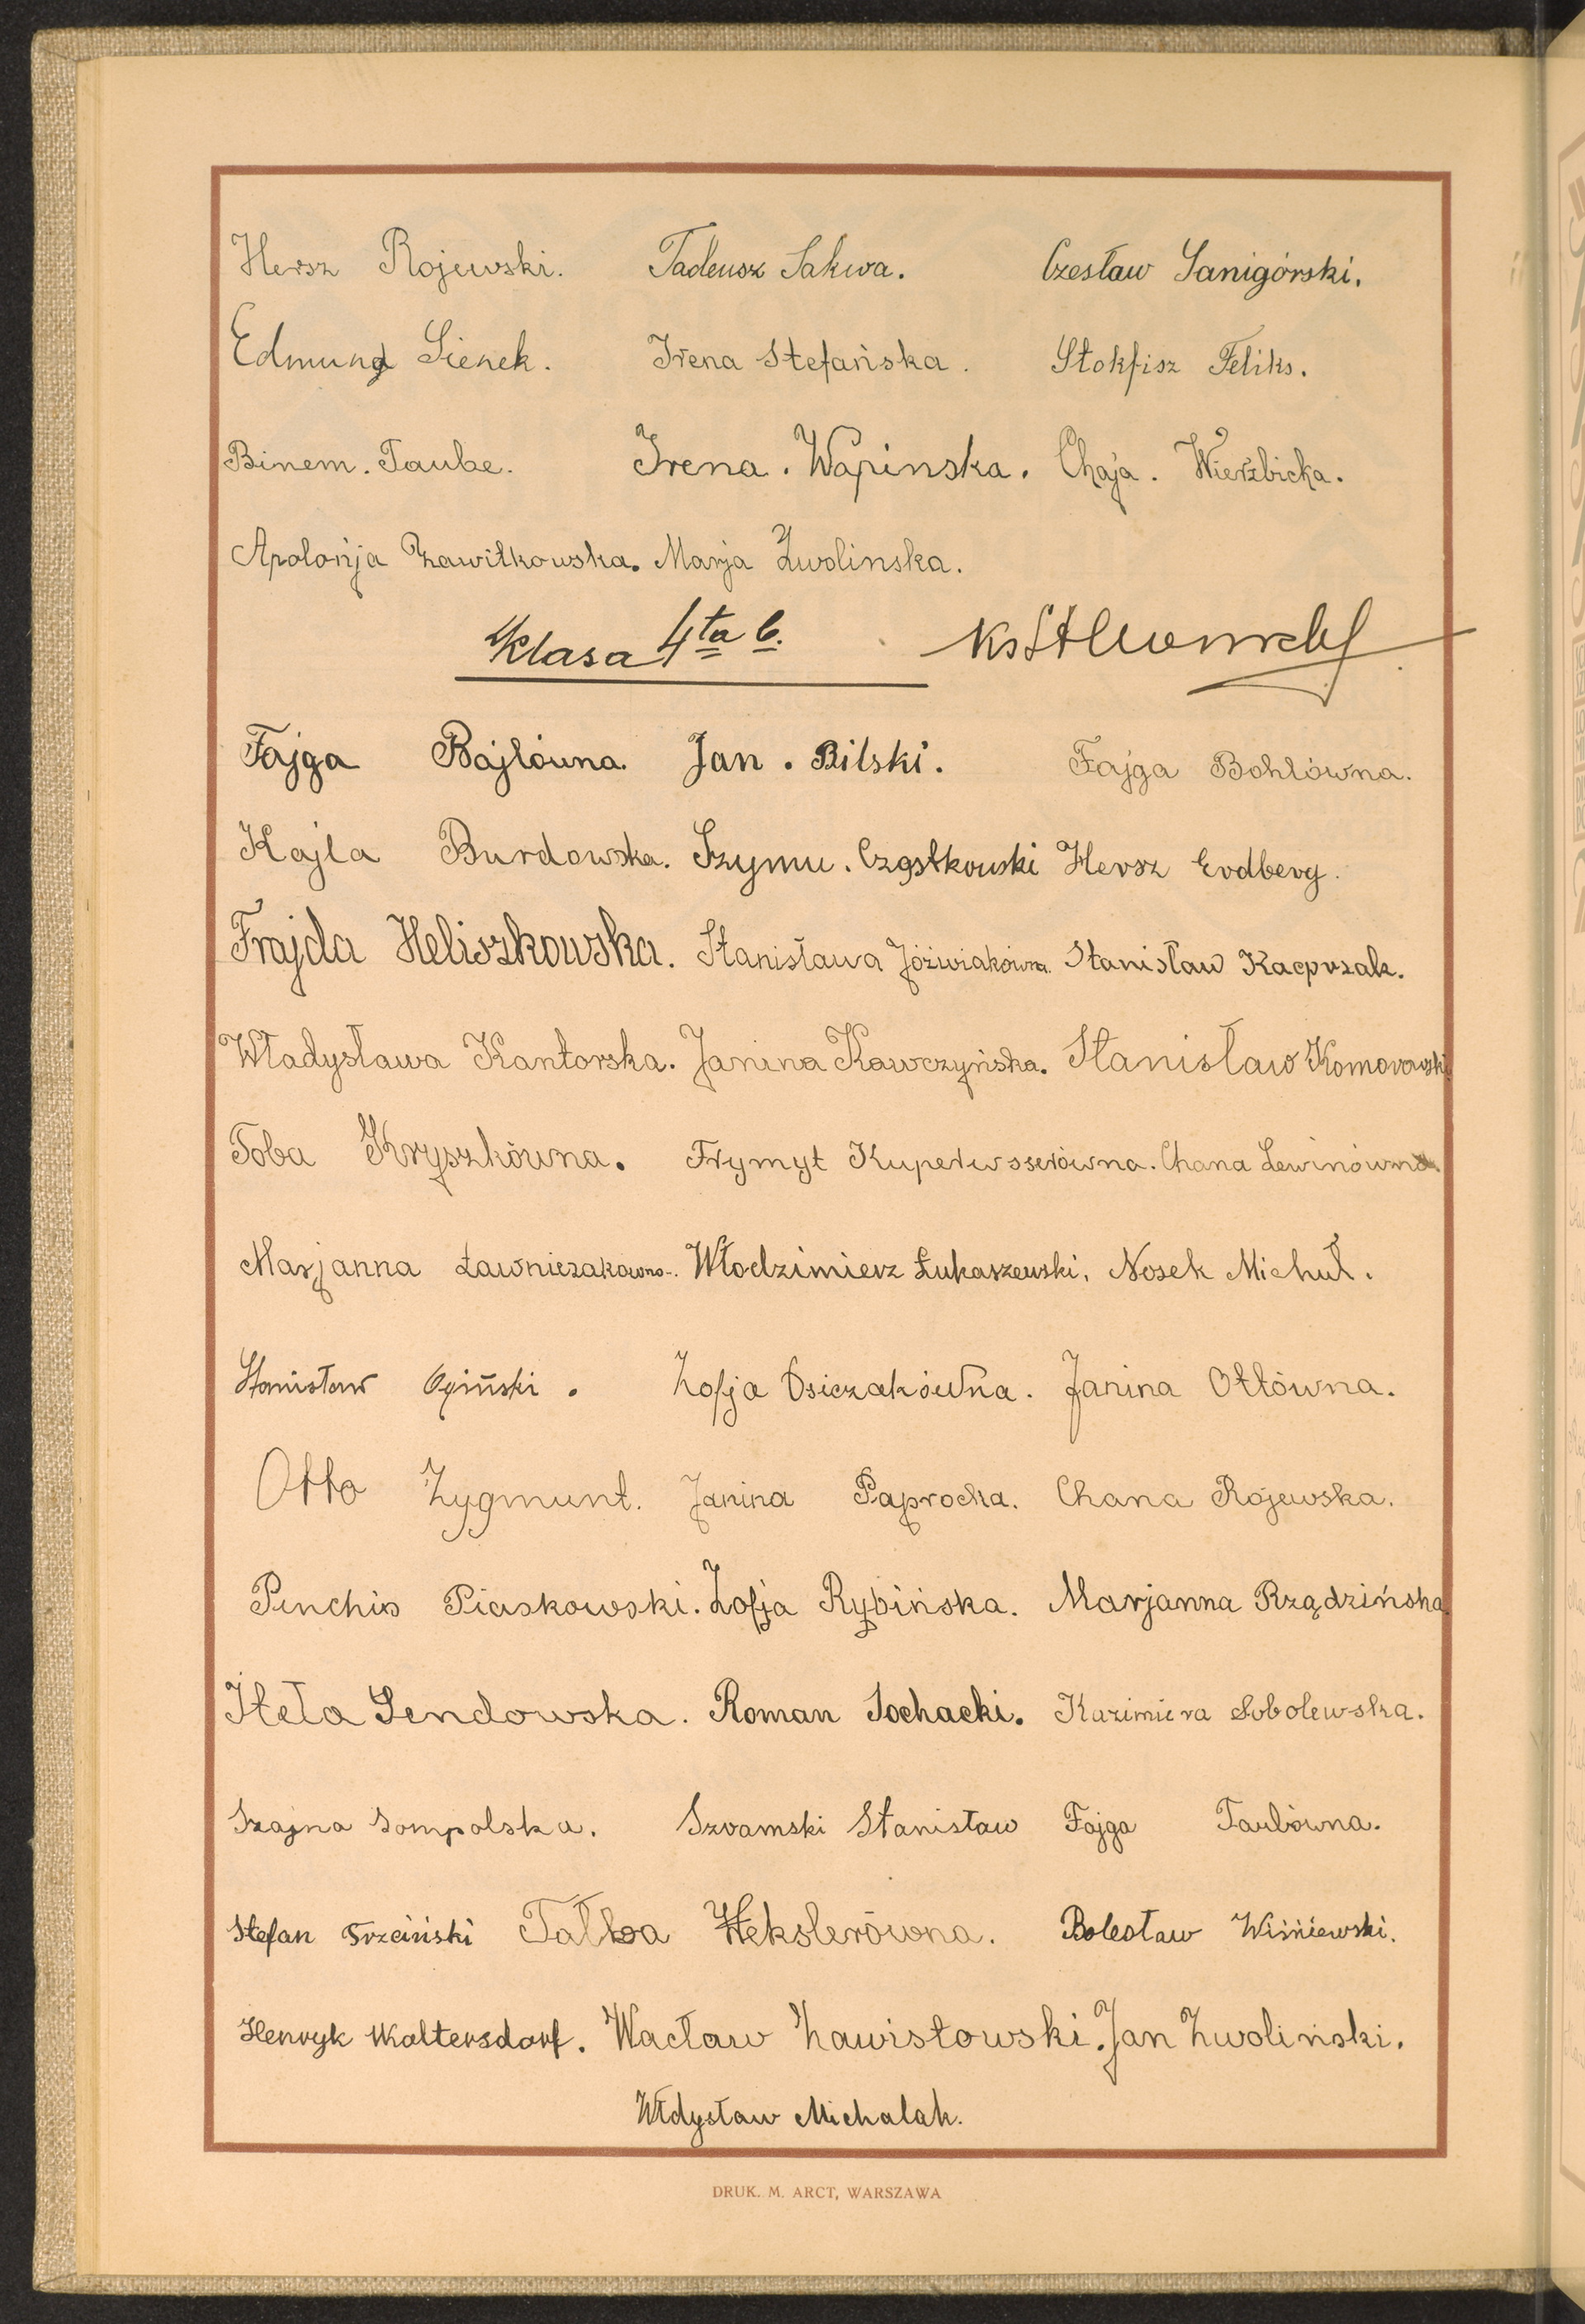 Hersz Rojewski. Tadeusz Sakwa. Czesław Sanigórski.
Edmund Sienek. Irena Stefańska. Stokfisz Feliks.
Binem. Taube. Irena. Wapinska. Chaja. Wierzbicka.
Apolonja Zawitkowska. Marja Zwolinska.
Klasa 4ta b.
Fajga Bajlówna. Jan. Bilski. Fajga Bohlówna.
Kajla Burdowska. Szymu. Cząstkowski Hersz Erdberg.
Frajda Heliszkowska. Stanisława Jóźwiakówna. Stanisław Kacprzak.
Władysława Kantorska. Janina Kawczyńska. Stanisław Komorowski
Toba Kryszkówna. Frymyt Kuperwsserówna. Chana Lewinówna
Marjanna Ławniczakówna. Włodzimierz Łukaszewski. Nosek Michuł.
Stanisław Ogiński. Zofja Osiczakówna. Janina Ottówna.
Otto Zygmunt. Janina Paprocka. Chana Rojewska.
Pinchis Piaskowski. Zofja Rybińska. Marjanna Rządzińska.
Iteta Sendowska. Roman Sochacki. Kazimiera Sobolewska.
Szajna Sompolska. Szramski Stanisław Fajga Taubówna.
Stefan Trzciński Talba Wekslerówna. Bolesław Wiśniewski.
Henryk Woltersdorf. Wacław Zawistowski. Jan Zwoliński.
Włdysław Michalak.
DRUK. M. ARCT, WARSZAWA